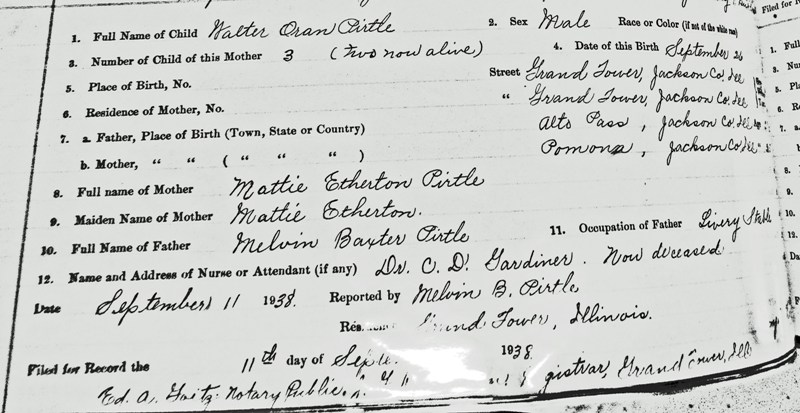 1. Full Name of Child Walter Oran Pirtle 2. Sex Male Race or Color (if not of the white race)
3. Number of Child of this Mother 3 (Two now alive) 4. Date of this Birth September 26
5. Place of Birth, No. Street Grand Tower, Jackson Co. Ill
6. Residence of Mother, No. " Grand Tower, Jackson Co. Ill
7. a. Father, Place of Birth (Town, State or Country) Alto Pass, Jackson Co. Ill
b. Mother, " " ( " " " ) Pomona, Jackson Co. Ill
8. Full name of Mother Mattie Etherton Pirtle
9. Maiden Name of Mother Mattie Etherton.
10. Full Name of Father Melvin Baxter Pirtle 11. Occupation of Father Livery Stable
12. Name and Address of Nurse or Attendant (if any) Dr. C. D. Gardiner. Now deceased
Date September 11 1938. Reported by Melvin B. Pirtle
Res. Grand Tower, Illinois.
Filed for Record the 11th day of Septe 1938
Ed. A. Notary Public. gistrar, Grand Tower, Ill